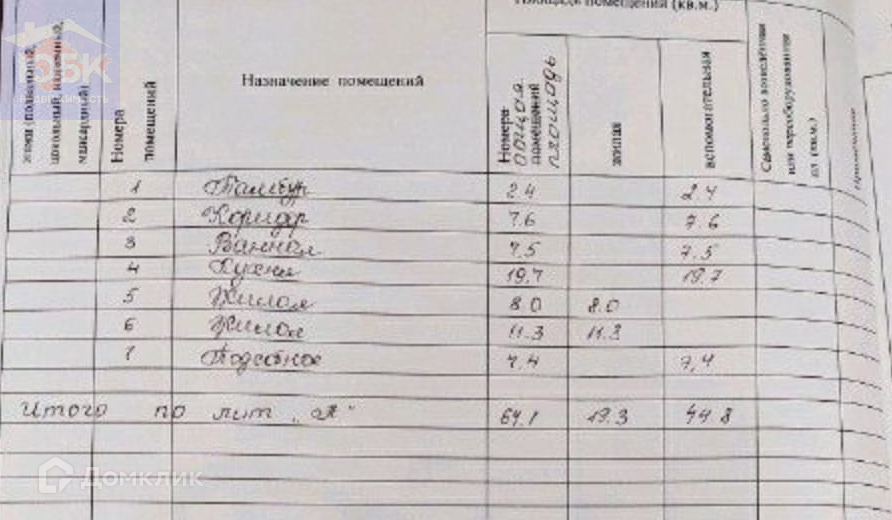 Площадь помещений (кв.м.)
этажи (подвальный, цокольный, мансардный)
Номера помещений
Назначение помещений
Номера помещений
общая площадь
жилая
вспомогательная
Самовольно возведённая или переоборудованная пл. (кв.м.)
Примечание
1 Тамбур 2.4 2.4
2 Коридор 7.6 7.6
3 Ванная 7.5 7.5
4 Кухня 19.7 19.7
5 Жилая 8.0 8.0
6 Жилая 11.3 11.3
7 Подсобное 7.4 7,4
Итого по лит „А" 64.1 19.3 44.8
Домклик